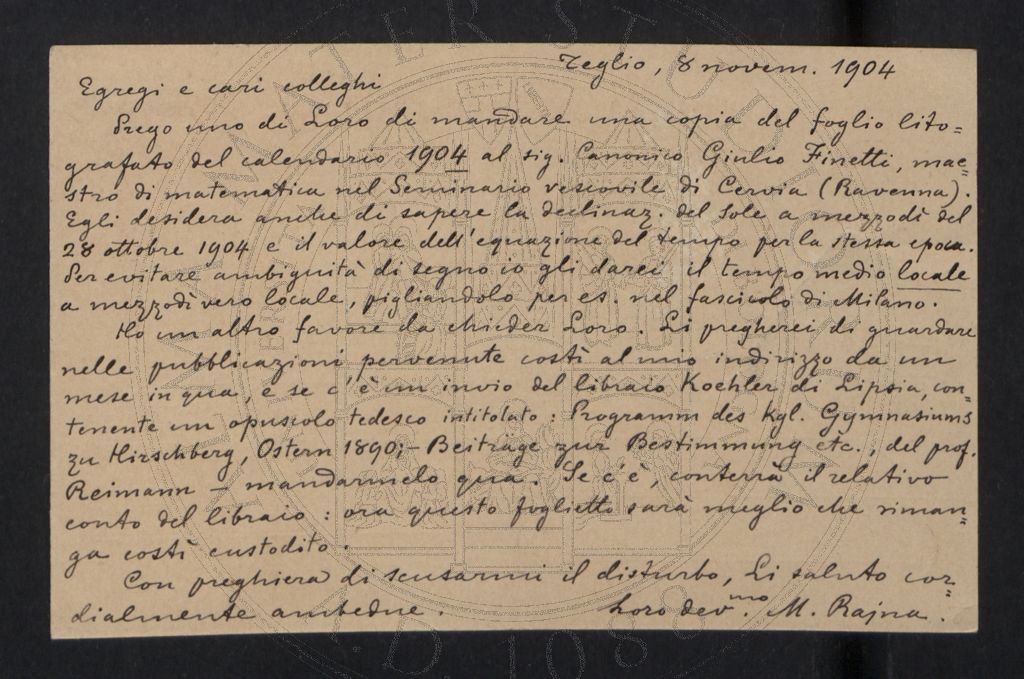 Teglio, 8 novem. 1904
Egregi e cari colleghi
Prego uno di Loro di mandare una copia del foglio lito=
grafato del calendario 1904 al sig. Canonico Giulio Finetti, mae=
stro di matematica nel Seminario vescovile di Cervia (Ravenna).
Egli desidera anche di sapere la declinaz. del Sole a mezzodì del
28 ottobre 1904 e il valore dell'equazione del tempo per la stessa epoca.
Per evitare ambiguità di segno io gli darei il tempo medio locale
a mezzodì vero locale, pigliandolo per es. nel fascicolo di Milano.
Ho un altro favore da chieder Loro. Li pregherei di guardare
nelle pubblicazioni pervenute costì al mio indirizzo da un
mese in qua, e se c'è un invio del libraio Koehler di Lipsia, con=
tenente un opuscolo tedesco intitolato: Programm des Kgl. Gymnasiums
zu Hirschberg, Ostern 1890;- Beiträge zur Bestimmung etc., del prof.
Reimann - mandarmelo qua. Se c'è, conterrà il relativo
conto del libraio: ora questo foglietto sarà meglio che riman=
ga costì custodito.
Con preghiera di scusarmi il disturbo, Li saluto cor=
dialmente ambedue. Loro dev.mo M. Rajna.
A.D. 1088